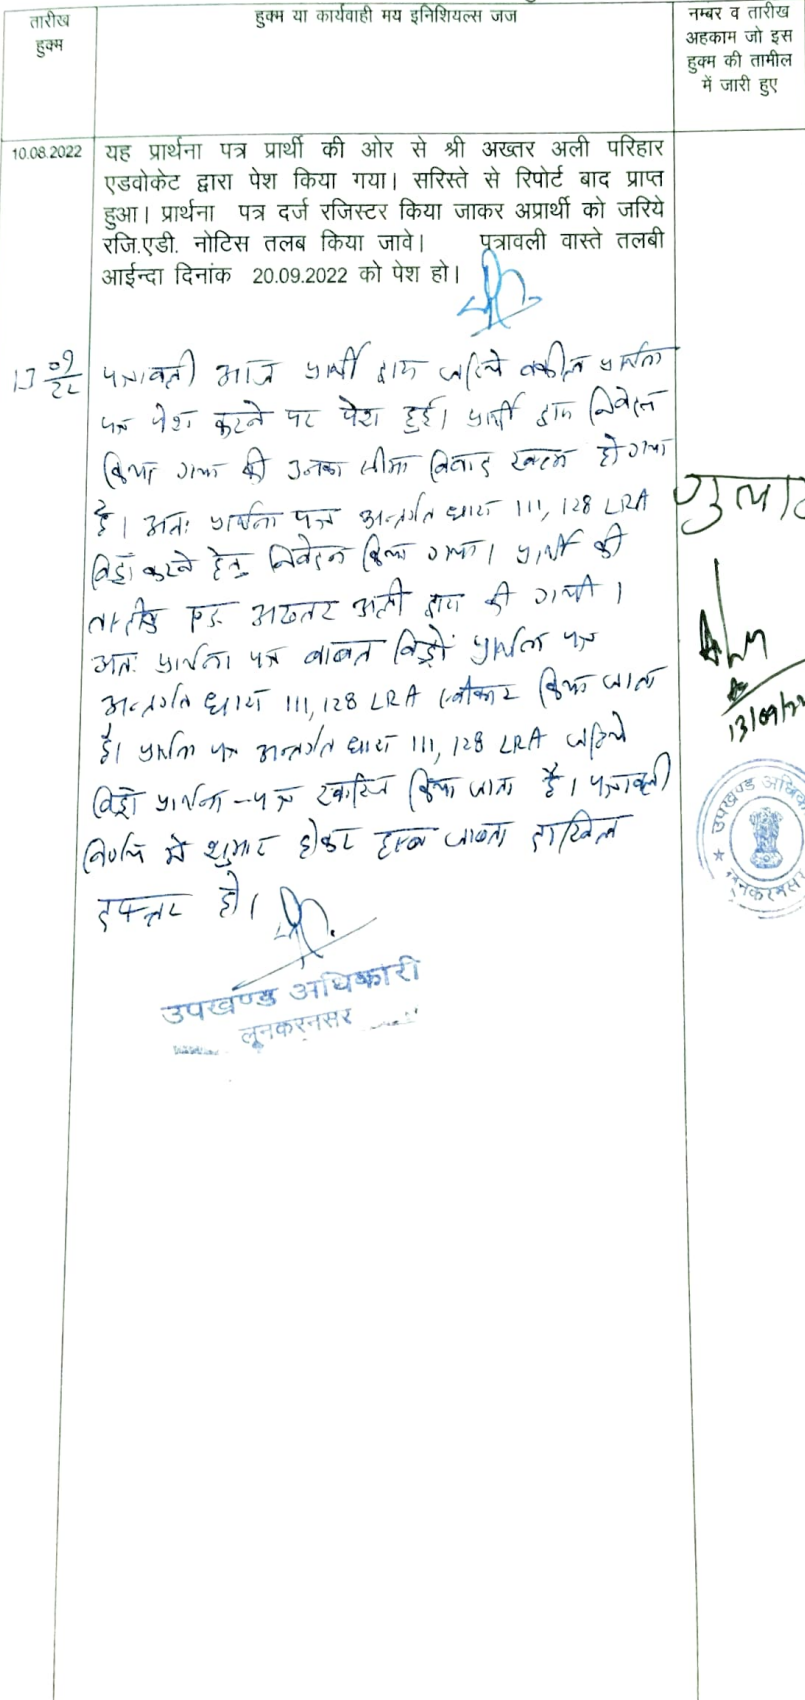 तारीख
हुक्म
हुक्म या कार्यवाही मय इनिशियल्स जज
नम्बर व तारीख
अहकाम जो इस
हुक्म की तामील
में जारी हुए
10.08.2022
यह प्रार्थना पत्र प्रार्थी की ओर से श्री अख्तर अली परिहार
एडवोकेट द्वारा पेश किया गया। सरिस्ते से रिपोर्ट बाद प्राप्त
हुआ। प्रार्थना पत्र दर्ज रजिस्टर किया जाकर अप्रार्थी को जरिये
रजि.एडी. नोटिस तलब किया जावे। पत्रावली वास्ते तलबी
आईन्दा दिनांक 20.09.2022 को पेश हो।
13 09/22
पत्रावली आज प्रार्थी द्वारा जरिये वकील प्रार्थना
पत्र पेश करने पर पेश हुई। प्रार्थी द्वारा निवेदन
किया गया की उनका सीमा विवाद खत्म हो गया
है। अतः प्रार्थना पत्र अन्तर्गत धारा 111, 128 LRA
विड्रो करने हेतु निवेदन किया गया। प्रार्थी की
अख्तर अली द्वारा की गयी।
अतः प्रार्थना पत्र बाबत विड्रो प्रार्थना पत्र
अन्तर्गत धारा 111, 128 LRA स्वीकार किया जाता
है। प्रार्थना पत्र अन्तर्गत धारा 111, 128 LRA जरिये
विड्रो प्रार्थना-पत्र खारिज किया जाता है। पत्रावली
निर्णय में शुमार होकर जाब्ता दाखिल
दफ्तर हो।
13/09/22
उपखण्ड अधिकारी
लूनकरनसर